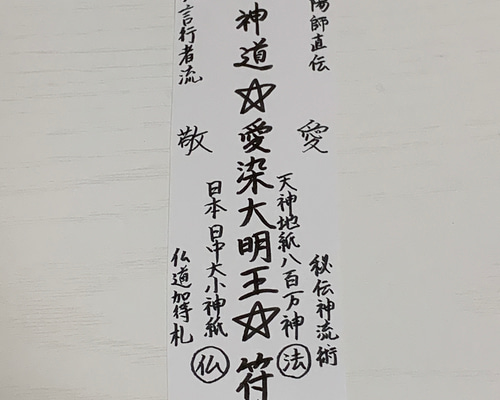 陽師直伝
愛
秘伝神流術
天神地紙八百万神
法
神道☆愛染大明王☆符
日本日中大小神紙
仏
言行者流
敬
仏道加待札